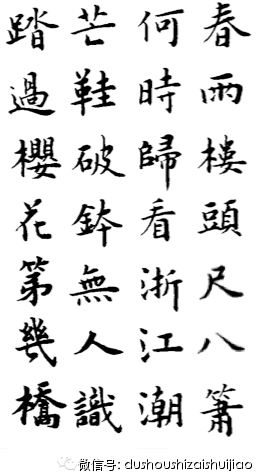 春雨樓頭尺八簫
何時歸看浙江潮
芒鞋破鉢無人識
踏過櫻花第幾橋
微信号: dushoushizaishuijiao